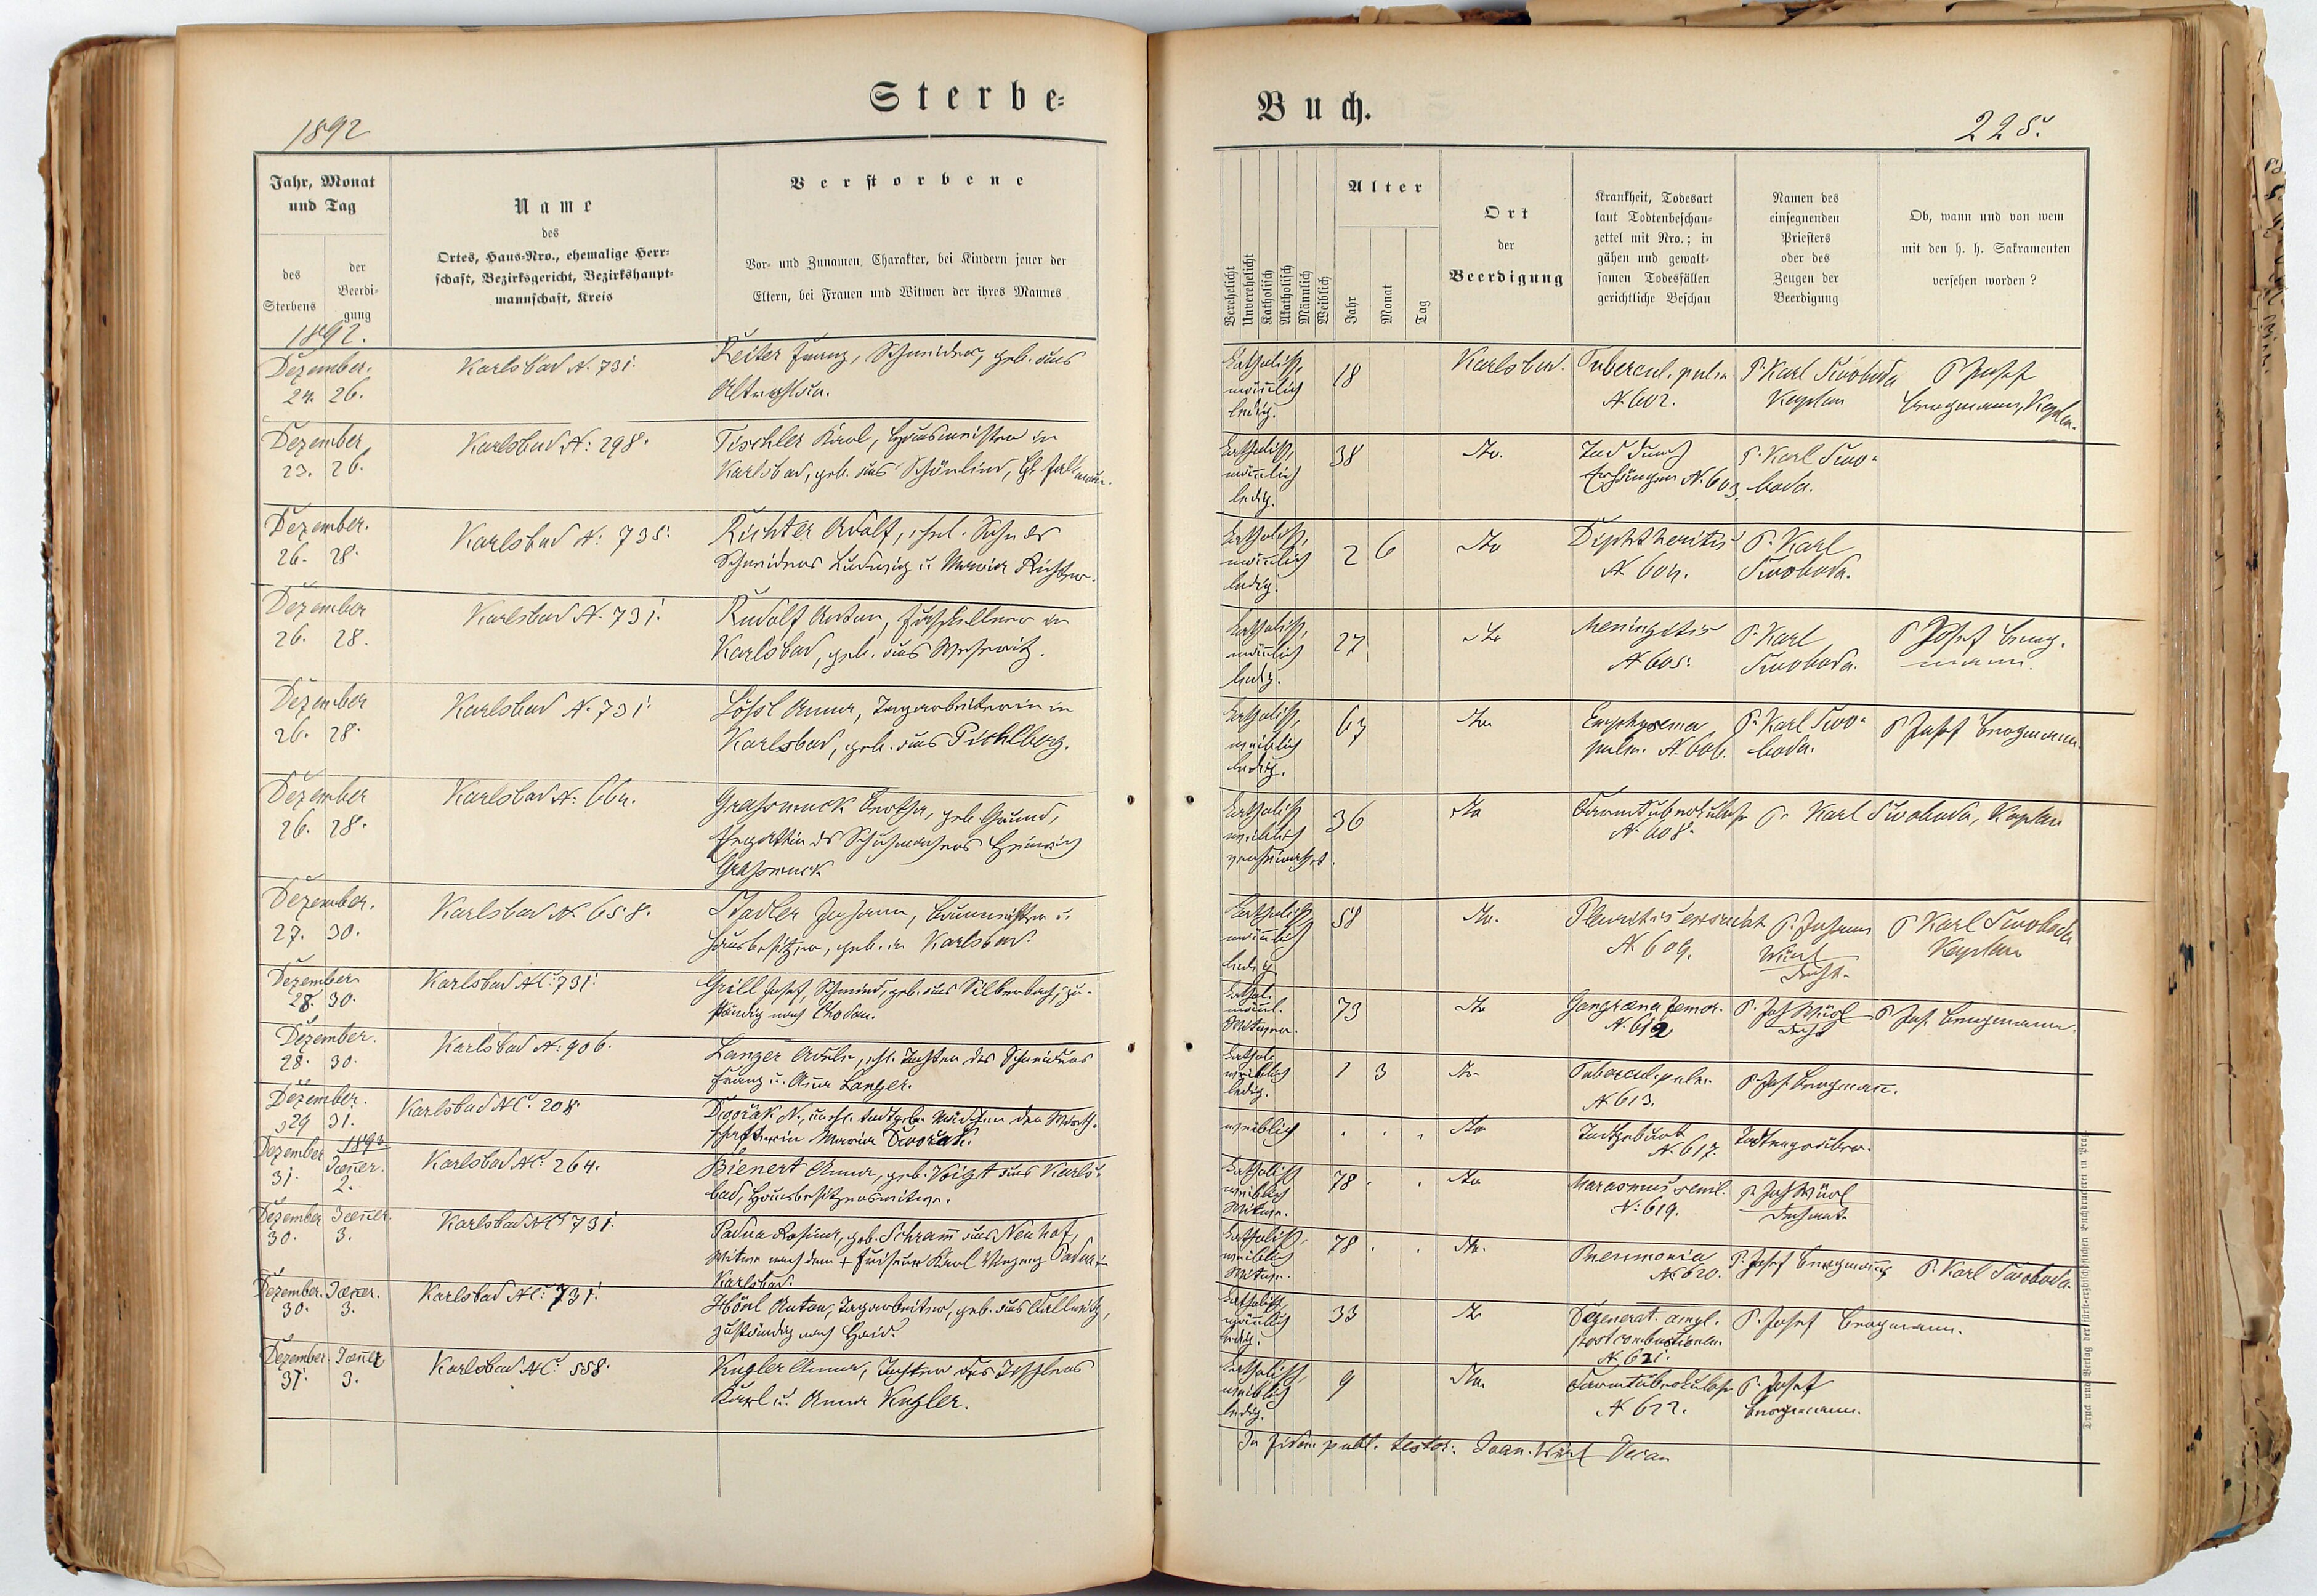 Sterbe-
Buch.
1892
225.
Jahr, Monat
und Tag
des
Sterbens
der
Beerdi-
gung
Name
des
Ortes, Haus-Nro., ehemalige Herr-
schaft, Bezirksgericht, Bezirkshaupt-
mannschaft, Kreis
Verstorbene
Vor- und Zunamen, Charakter, bei Kindern jener der
Eltern, bei Frauen und Witwen der ihres Mannes
Verehelicht
Unverehelicht
Katholisch
Akatholisch
Männlich
Weiblich
Alter
Jahr
Monat
Tag
Ort
der
Beerdigung
Krankheit, Todesart
laut Todtenbeschau-
zettel mit Nro.; in
gähen und gewalt-
samen Todesfällen
gerichtliche Beschau
Namen des
einsegnenden
Priesters
oder des
Zeugen der
Beerdigung
Ob, wann und von wem
mit den h. h. Sakramenten
versehen worden?
1892.
Dezember.
24. 26.
Karlsbad N. 731.
Reiter Franz, Schneider, geb. aus
katholisch,
männlich
ledig.
18
Karlsbad.
Tubercul. pulm.
N. 602.
P. Karl Swoboda
Kaplan
P Josef
Brogmann, Kaplan.
Dezember
23. 26.
Karlsbad N: 298.
Tischler Karl, Hausmeister in
Karlsbad, geb. aus Schönlind,
katholisch,
männlich
ledig.
38
Tod durch
Erhängen N. 603.
P. Karl Swo-
boda.
Dezember.
26. 28.
Karlsbad N: 735.
Richter Adolf, ehel. Sohn des
Schneiders Ludwig u. Maria Richter.
katholisch,
männlich
ledig.
2 6
Diphtheritis
N. 604.
P. Karl
Swoboda.
Dezember
26. 28.
Karlsbad N. 731.
Rudolf Anton, in
Karlsbad, geb. aus
katholisch,
männlich
ledig.
27
Meningitis
N. 605.
P. Karl
Swoboda.
P Josef Brog-
mann.
Dezember
26. 28.
Karlsbad N. 731.
Lössl Anna, Tagarbeiterin in
Karlsbad, geb. aus Pichlberg.
katholisch,
weiblich
ledig.
67
Emphysema
pulm. N. 606.
P. Karl Swo-
boda.
P Josef Brogmann.
Dezember
26. 28.
Karlsbad N: 664.
Grassmuck Bertha, geb. Grund,
Ehegattin des Schuhmachers Heinrich
Grassmuck
katholisch
weiblich
verheirathet.
36
Darmtuberkulose
N. 608.
P. Karl Swoboda, Kaplan
Dezember.
27. 30.
Karlsbad N. 658.
Stadler Johann, u.
Hausbesitzer, geb. in Karlsbad.
katholisch
männlich
ledig
58
Pleuritis exsudat
N. 609.
P. Johann
Würl
Dechant
P Karl Swoboda
Kaplan
Dezember
28. 30.
Karlsbad NC: 731.
Grill Josef, Schmied, geb. aus Silberbach, zu-
ständig nach Chodau.
kathol.
männl.
Witwer.
73
Gangraena femor.
N. 612
P. Joh Würl
P Jos. Brogmann.
Dezember.
28. 30.
Karlsbad N: 906.
Langer Adele, ehl. Tochter des Schneiders
Franz u. Anna Langer.
kathol.
weiblich
ledig.
1 3
Tubercul. pulm.
N. 613.
P. Jos. Brogmann.
Dezember.
29 31.
Karlsbad NC. 208.
Dvořák N., unehl. todtgeb. Mädchen der Wirth-
schafterin Maria Dvořák.
weiblich
Todtgeburt
N. 617.
Todtengräber.
Dezember 1893
31. Jäner.
2.
Karlsbad NC: 264.
Bienert Anna, geb. Voigt aus Karls-
bad, Hausbesitzerswitwe.
katholisch
weiblich
Witwe.
78
Marasmus senil.
N: 619.
P. Joh Würl
Dechant
Dezember Jäner.
30. 3.
Karlsbad NC: 731.
Padua Rosina, geb. Schramm aus Neuhof,
Witwe nach dem + Friseur Karl Padua in
Karlsbad.
katholisch.
weiblich
Witwe.
78
Pneumonia
N. 620.
P. Josef Brogmann
P. Karl Swoboda.
Dezember. Jäner.
30. 3.
Karlsbad NC: 731.
Hönl Anton, Tagarbeiter, geb. aus
zuständig nach Haid.
katholisch,
männlich
ledig.
33
Degenerat. amyl.
post combustionem
N. 621.
P. Josef Brogmann.
Dezember. Jäner
31. 3.
Karlsbad NC: 558.
Kugler Anna, Tochter des Tischlers
Karl u. Anna Kugler.
katholisch,
weiblich
ledig.
9
Darmtuberkulose
N 622.
P. Josef
Brogmann.
In fidem publ. testor: Joan. Würl Decan
Druck und Verlag der fürst-erzbischöflichen Buchdruckerei in Prag.